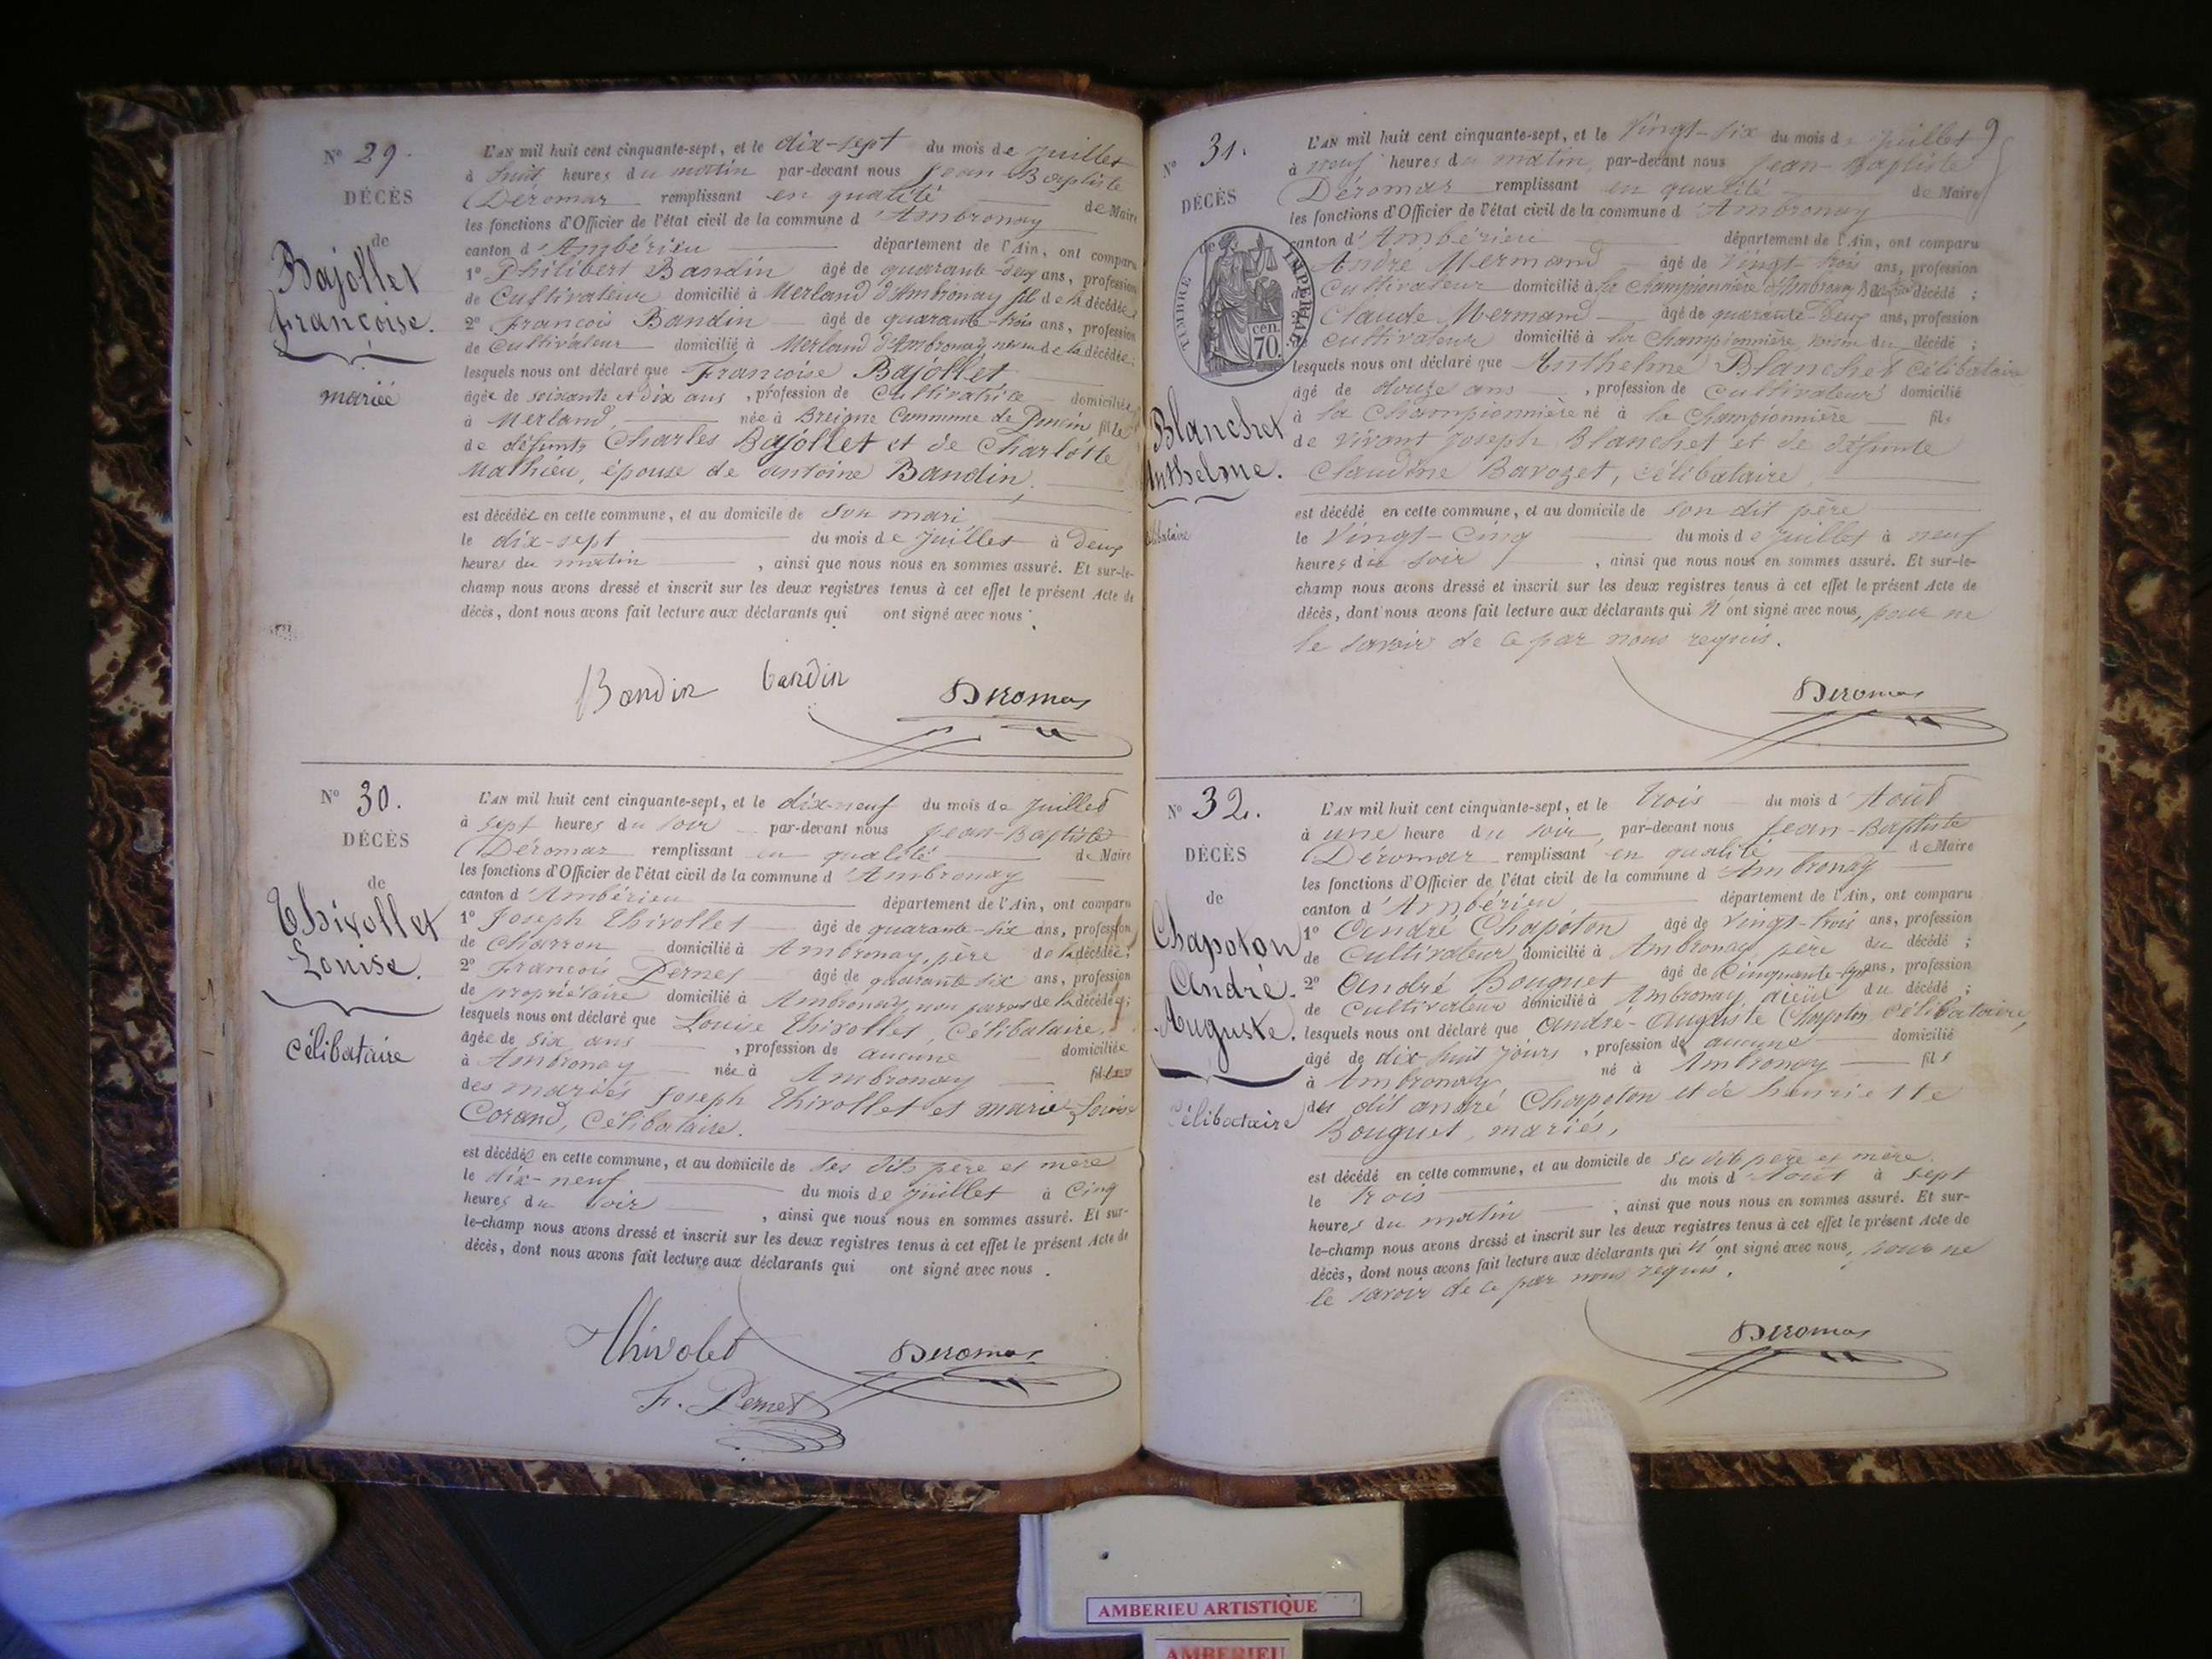 N° 29.
DÉCÈS
de
Bajollet
Françoise.
mariée
L'AN mil huit cent cinquante-sept, et le dix-sept du mois de juillet
à huit heures du matin par-devant nous Jean-Baptiste
Déromas remplissant en qualité de Maire
les fonctions d'Officier de l'état civil de la commune d'Ambronay
canton d'Ambérieu département de l'Ain, ont comparu
1° Philibert Bandin âgé de quarante-deux ans, profession
de Cultivateur domicilié à Merland d'Ambronay fil de la décédée
2° François Bandin âgé de quarante-trois ans, profession
de Cultivateur domicilié à Merland d'Ambronay neveu de la décédée;
lesquels nous ont déclaré que Françoise Bajollet
âgée de soixante et dix ans, profession de Cultivatrice domiciliée
à Merland, née à Breigne Commune de Poncin fille
de défunts Charles Bajollet et de Charlotte
Mathieu, épouse de antoine Bandin,
est décédée en cette commune, et au domicile de son mari
le dix-sept du mois de juillet à deux
heures du matin, ainsi que nous nous en sommes assuré. Et sur-le-
champ nous avons dressé et inscrit sur les deux registres tenus à cet effet le présent Acte de
décès, dont nous avons fait lecture aux déclarants qui ont signé avec nous.
Bandin bandin Deromas
N° 30.
DÉCÈS
de
Thivollet
Louise.
célibataire
L'AN mil huit cent cinquante-sept, et le dix-neuf du mois de juillet
à sept heures du soir par-devant nous Jean-Baptiste
Déromas remplissant en qualité de Maire
les fonctions d'Officier de l'état civil de la commune d'Ambronay
canton d'Ambérieu département de l'Ain, ont comparu
1° Joseph Thivollet âgé de quarante-six ans, profession
de Charron domicilié à Ambronay, père de la décédée;
2° François Pernet âgé de quarante six ans, profession
de propriétaire domicilié à Ambronay, non parent de la décédée;
lesquels nous ont déclaré que Louise Thivollet, Célibataire,
âgée de six ans, profession de aucune domiciliée
à Ambronay née à Ambronay fille
des mariés Joseph Thivollet et marie-Louise
Corand, Célibataire.
est décédée en cette commune, et au domicile de ses dits père et mère
le dix-neuf du mois de juillet à Cinq
heures du soir, ainsi que nous nous en sommes assuré. Et sur-
le-champ nous avons dressé et inscrit sur les deux registres tenus à cet effet le présent Acte de
décès, dont nous avons fait lecture aux déclarants qui ont signé avec nous.
Thivolet Deromas
F. Pernet
9
N° 31.
DÉCÈS
de
TIMBRE IMPERIAL
70 cen.
Blanchet
Anthelme.
célibataire
L'AN mil huit cent cinquante-sept, et le Vingt-six du mois de juillet
à neuf heures du matin, par-devant nous Jean-Baptiste
Déromas remplissant en qualité de Maire
les fonctions d'Officier de l'état civil de la commune d'Ambronay
canton d'Ambérieu département de l'Ain, ont comparu
André Mermand âgé de Vingt trois ans, profession
Cultivateur domicilié à la Championnière d'Ambronay décédé;
Claude Mermand âgé de quarante deux ans, profession
cultivateur domicilié à la Championnière, voisin du décédé;
lesquels nous ont déclaré que Anthelme Blanchet Célibataire
âgé de douze ans, profession de cultivateur domicilié
à la Championnière né à la Championnière fils
de vivant Joseph Blanchet et de défunte
Claudine Bavozet, célibataire,
est décédé en cette commune, et au domicile de son dit père
le Vingt-Cinq du mois de juillet à neuf
heures du soir, ainsi que nous nous en sommes assuré. Et sur-le-
champ nous avons dressé et inscrit sur les deux registres tenus à cet effet le présent Acte de
décès, dont nous avons fait lecture aux déclarants qui n'ont signé avec nous, pour ne
le savoir de ce par nous requis.
Deromas
N° 32.
DÉCÈS
de
Chapoton
André-
Auguste.
Célibataire
L'AN mil huit cent cinquante-sept, et le trois du mois d'Août
à une heure du soir, par-devant nous Jean-Baptiste
Déromas remplissant en qualité de Maire
les fonctions d'Officier de l'état civil de la commune d'Ambronay
canton d'Ambérieu département de l'Ain, ont comparu
1° André Chapoton âgé de Vingt-trois ans, profession
de Cultivateur, domicilié à Ambronay père du décédé;
2° André Bouguet âgé de Cinquante-sept ans, profession
de Cultivateur domicilié à Ambronay, aïeul du décédé;
lesquels nous ont déclaré que André-Auguste Chapoton célibataire,
âgé de dix-huit jours, profession de aucune domicilié
à Ambronay né à Ambronay fils
des dit andré Chapoton et de henriette
Bouguet, mariés,
est décédé en cette commune, et au domicile de ses dits père et mère.
le trois du mois d'Août à sept
heures du matin, ainsi que nous nous en sommes assuré. Et sur-
le-champ nous avons dressé et inscrit sur les deux registres tenus à cet effet le présent Acte de
décès, dont nous avons fait lecture aux déclarants qui n'ont signé avec nous, pour ne
le savoir de ce par nous requis.
Deromas
AMBERIEU ARTISTIQUE
AMBERIEU